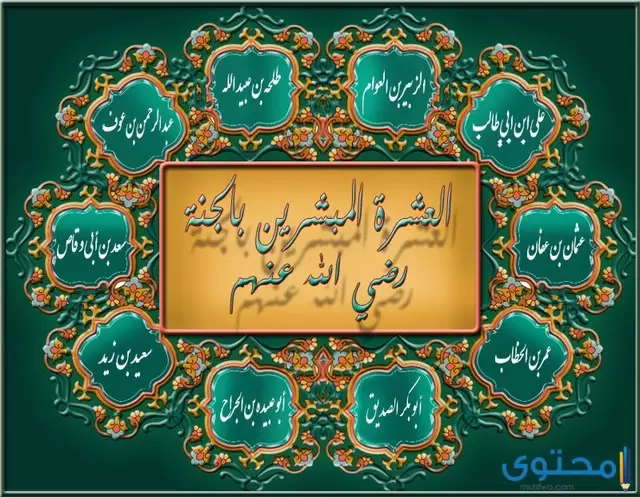 طلحه بن عبيد الله
الزبير بن العوام
عبد الرحمن بن عوف
علي ابن ابي طالب
العشرة المبشرين بالجنة
رضي الله عنهم
سعد بن أبي وقاص
عثمان بن عفان
سعيد بن زيد
عمر بن الخطاب
أبو عبيده بن الجراح
أبو بكر الصديق
محتوى
muhtwa.com